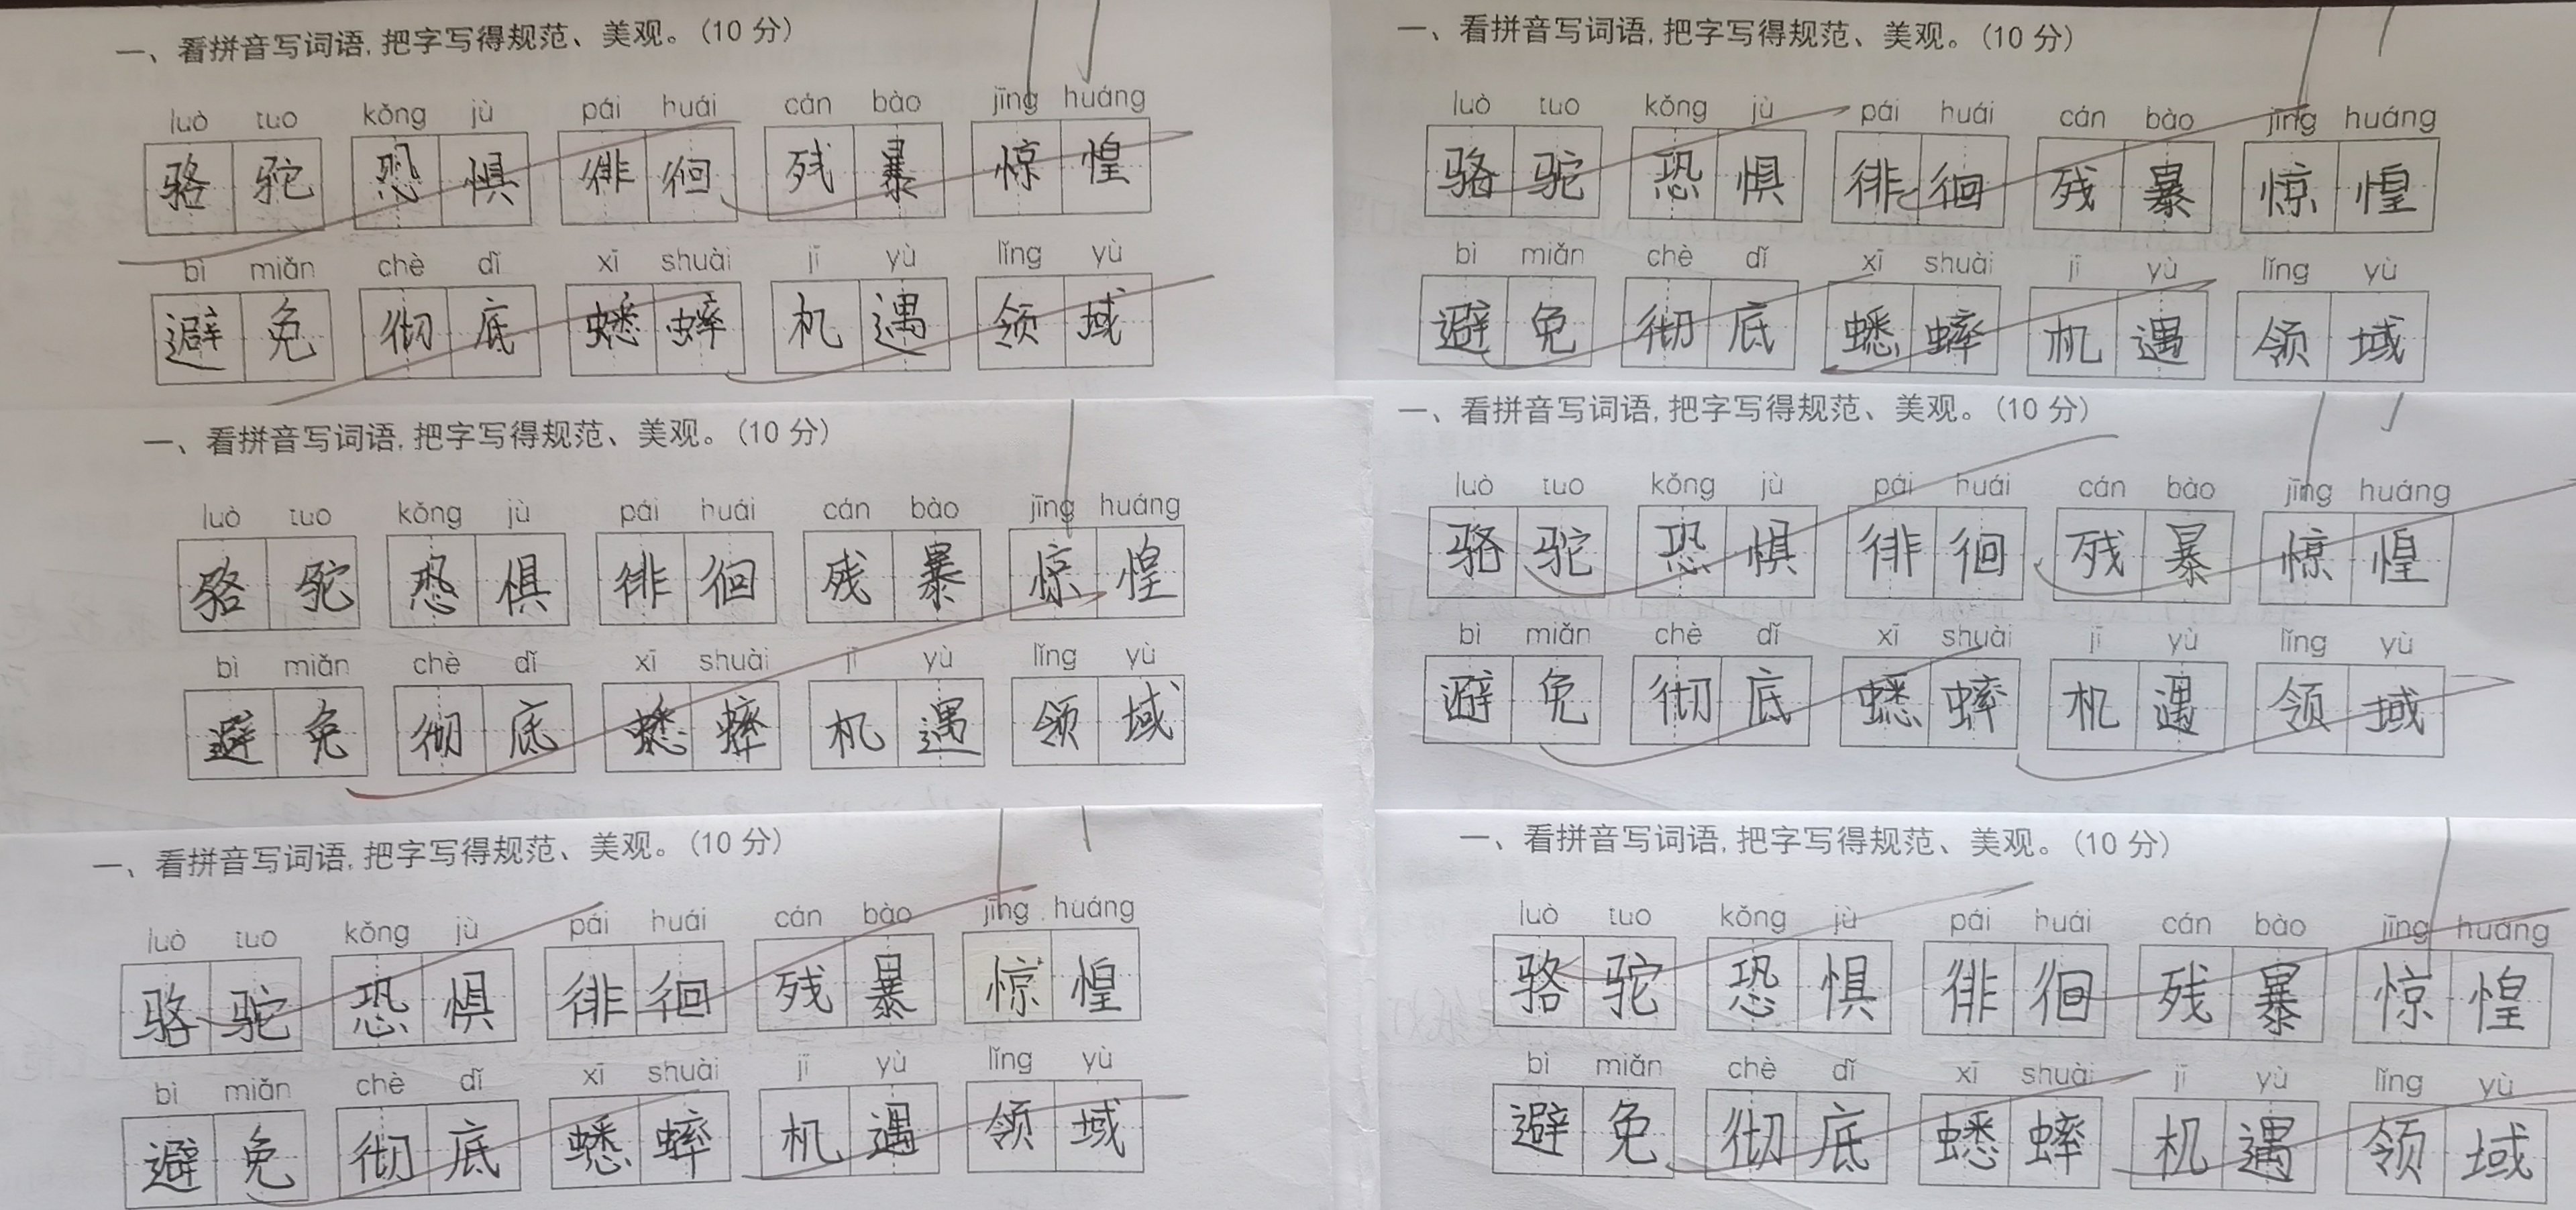 一、看拼音写词语,把字写得规范、美观。(10 分)
luò tuo kǒng jù pái huái cán bào jīng huáng
骆驼 恐惧 徘徊 残暴 惊惶
bì miǎn chè dǐ xī shuài jī yù lǐng yù
避免 彻底 蟋蟀 机遇 领域
一、看拼音写词语,把字写得规范、美观。(10 分)
luò tuo kǒng jù pái huái cán bào jīng huáng
骆驼 恐惧 徘徊 残暴 惊惶
bì miǎn chè dǐ xī shuài jī yù lǐng yù
避免 彻底 蟋蟀 机遇 领域
一、看拼音写词语,把字写得规范、美观。(10 分)
luò tuo kǒng jù pái huái cán bào jīng huáng
骆驼 恐惧 徘徊 残暴 惊惶
bì miǎn chè dǐ xī shuài jī yù lǐng yù
避免 彻底 蟋蟀 机遇 领域
一、看拼音写词语,把字写得规范、美观。(10 分)
luò tuo kǒng jù pái huái cán bào jīng huáng
骆驼 恐惧 徘徊 残暴 惊惶
bì miǎn chè dǐ xī shuài jī yù lǐng yù
避免 彻底 蟋蟀 机遇 领域
一、看拼音写词语,把字写得规范、美观。(10 分)
luò tuo kǒng jù pái huái cán bào jīng huáng
骆驼 恐惧 徘徊 残暴 惊惶
bì miǎn chè dǐ xī shuài jī yù lǐng yù
避免 彻底 蟋蟀 机遇 领域
一、看拼音写词语,把字写得规范、美观。(10 分)
luò tuo kǒng jù pái huái cán bào jīng huáng
骆驼 恐惧 徘徊 残暴 惊惶
bì miǎn chè dǐ xī shuài jī yù lǐng yù
避免 彻底 蟋蟀 机遇 领域